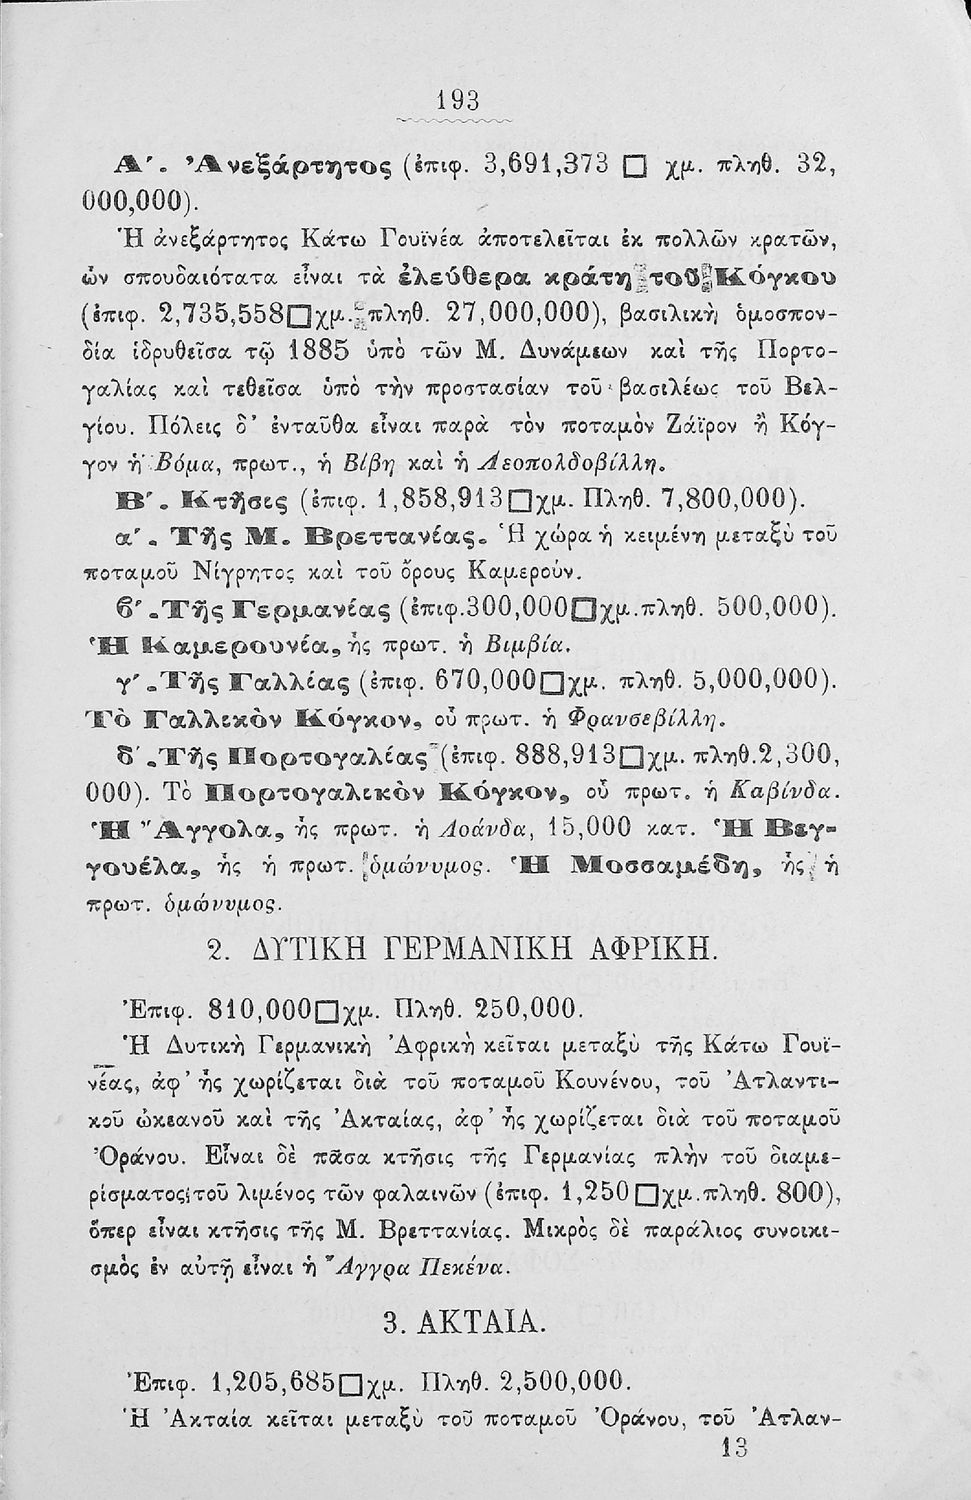 193
Α΄. Ἀνεξάρτητος (ἐπιφ. 3,691,373 □ χμ. πληθ. 32,
000,000).
Ἡ ἀνεξάρτητος Κάτω Γουϊνέα ἀποτελεῖται ἐκ πολλῶν κρατῶν,
ὧν σπουδαιότατα εἶναι τὰ ἐλεύθερα κράτη τοῦ Κόγκου
(ἐπιφ. 2,735,558□χμ. πληθ. 27,000,000), βασιλικὴ ὁμοσπον-
δία ἱδρυθεῖσα τῷ 1885 ὑπὸ τῶν Μ. Δυνάμεων καὶ τῆς Πορτο-
γαλίας καὶ τεθεῖσα ὑπὸ τὴν προστασίαν τοῦ βασιλέως τοῦ Βελ-
γίου. Πόλεις δ' ἐνταῦθα εἶναι παρὰ τὸν ποταμὸν Ζάϊρον ἢ Κόγ-
γον ἡ Βόμα, πρωτ., ἡ Βίβη καὶ ἡ Λεοπολδοβίλλη.
Β΄. Κτῆσις (ἐπιφ. 1,858,913□χμ. Πληθ. 7,800,000).
α΄. Τῆς Μ. Βρεττανίας. Ἡ χώρα ἡ κειμένη μεταξὺ τοῦ
ποταμοῦ Νίγρητος καὶ τοῦ ὄρους Καμερούν.
β΄. Τῆς Γερμανίας (ἐπιφ.300,000□χμ.πληθ. 500,000).
Ἡ Καμερουνία, ἧς πρωτ. ἡ Βιμβία.
γ΄. Τῆς Γαλλίας (ἐπιφ. 670,000□χμ. πληθ. 5,000,000).
Τὸ Γαλλικὸν Κόγκον, οὗ πρωτ. ἡ Φρανσεβίλλη.
δ΄. Τῆς Πορτογαλίας (ἐπιφ. 888,913□χμ. πληθ.2,300,
000). Τὸ Πορτογαλικὸν Κόγκον, οὗ πρωτ. ἡ Καβίνδα.
Ἡ Ἄγγολα, ἧς πρωτ. ἡ Λοάνδα, 15,000 κατ. Ἡ Βεγ-
γουέλα, ἧς ἡ πρωτ. ὁμώνυμος. Ἡ Μοσσαμέδη, ἧς ἡ
πρωτ. ὁμώνυμος.
2. ΔΥΤΙΚΗ ΓΕΡΜΑΝΙΚΗ ΑΦΡΙΚΗ.
Ἐπιφ. 810,000□χμ. Πληθ. 250,000.
Ἡ Δυτικὴ Γερμανικὴ Ἀφρικὴ κεῖται μεταξὺ τῆς Κάτω Γουϊ-
νέας, ἀφ' ἧς χωρίζεται διὰ τοῦ ποταμοῦ Κουνένου, τοῦ Ἀτλαντι-
κοῦ ὠκεανοῦ καὶ τῆς Ἀκταίας, ἀφ' ἧς χωρίζεται διὰ τοῦ ποταμοῦ
Ὀράνου. Εἶναι δὲ πᾶσα κτῆσις τῆς Γερμανίας πλὴν τοῦ διαμε-
ρίσματος τοῦ λιμένος τῶν φαλαινῶν (ἐπιφ. 1,250□χμ.πληθ. 800),
ὅπερ εἶναι κτῆσις τῆς Μ. Βρεττανίας. Μικρὸς δὲ παράλιος συνοικι-
σμὸς ἐν αὐτῇ εἶναι ἡ Ἄγγρα Πεκένα.
3. ΑΚΤΑΙΑ.
Ἐπιφ. 1,205,685□χμ. Πληθ. 2,500,000.
Ἡ Ἀκταία κεῖται μεταξὺ τοῦ ποταμοῦ Ὀράνου, τοῦ Ἀτλαν-
13